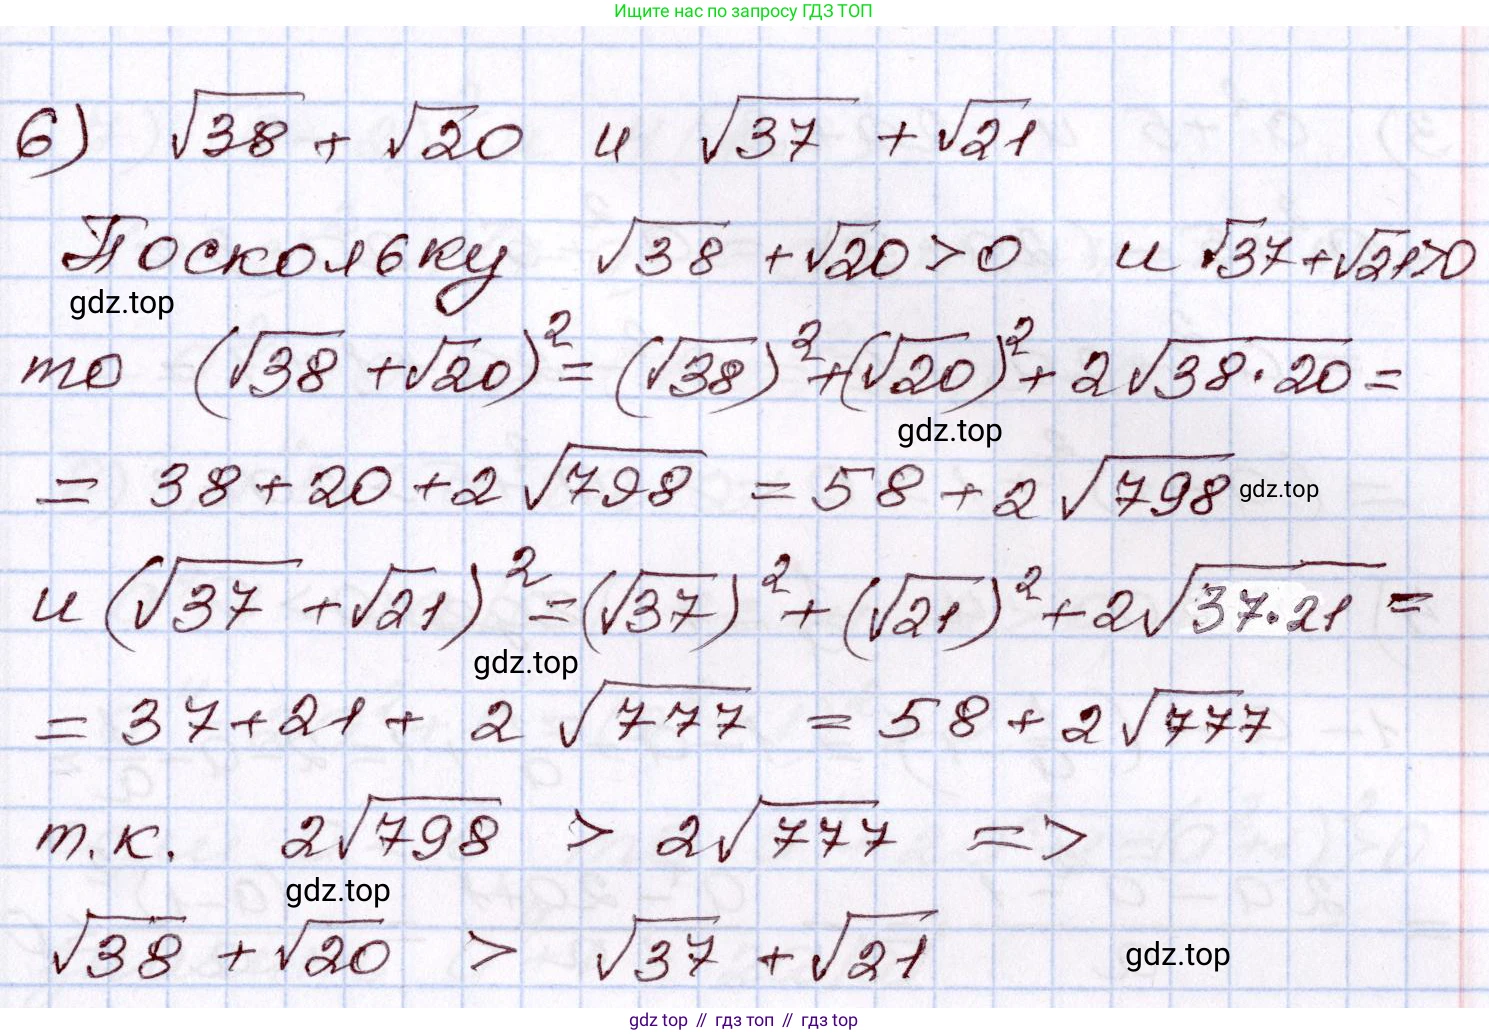 Ищите нас по запросу ГДЗ ТОП
6) √38 + √20 и √37 + √21
Поскольку √38 + √20 > 0 и √37 + √21 > 0
gdz.top
то (√38 + √20)² = (√38)² + (√20)² + 2√38·20 =
gdz.top
= 38 + 20 + 2√798 = 58 + 2√798 gdz.top
и (√37 + √21)² = (√37)² + (√21)² + 2√37·21 =
gdz.top
= 37 + 21 + 2√777 = 58 + 2√777
т.к. 2√798 > 2√777 =>
gdz.top
√38 + √20 > √37 + √21
gdz.top
gdz top // гдз топ // gdz top